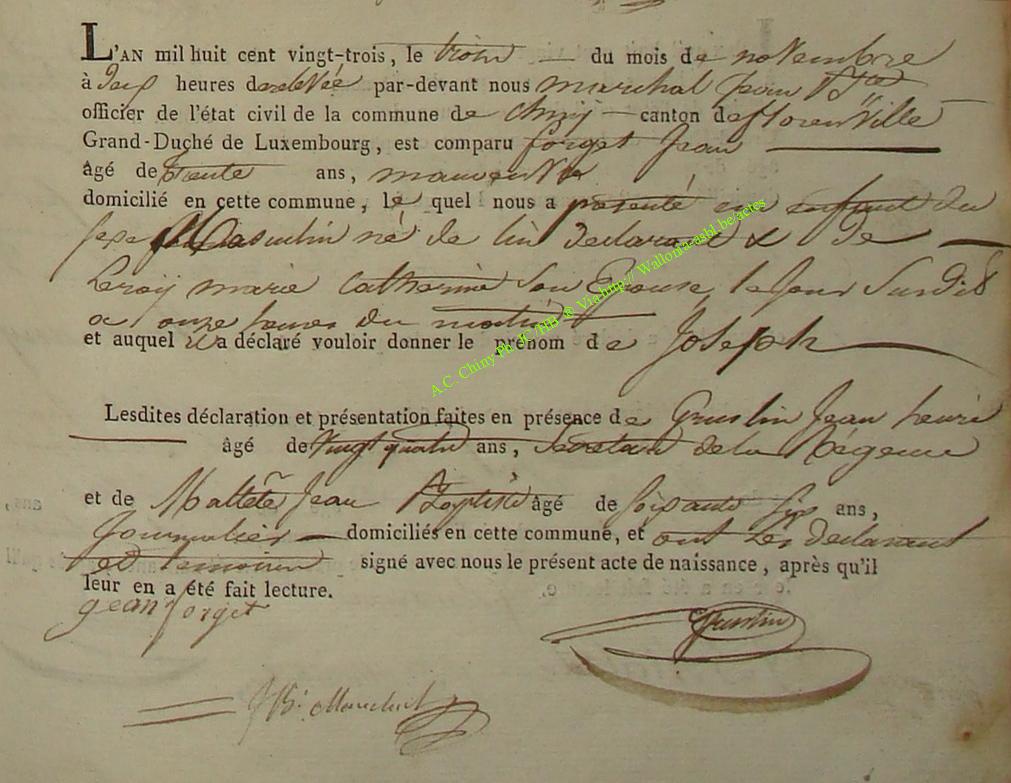 L'AN mil huit cent vingt-trois, le trois du mois de novembre
à heures de relevée par-devant nous marchal jean Bte
officier de l'état civil de la commune de chiny canton de florenville
Grand-Duché de Luxembourg, est comparu forget Jean
âgé de trente ans, manoeuvre
domicilié en cette commune, le quel nous a presenté un enfant du
sexe Masculin né de lui declarant & De
Leroy marie Catherine Son Epouse, le Jour Susdit
a onze heures du matin
et auquel il a déclaré vouloir donner le prénom de Joseph
Lesdites déclaration et présentation faites en présence de Gruslin Jean henri
âgé de vingt quatre ans, Secretaire de la Régence
et de Jean Baptiste âgé de soixante six ans,
Journalier domiciliés en cette commune, et ont Les Declarant
et temoins signé avec nous le présent acte de naissance, après qu'il
leur en a été fait lecture.
gean forget
Gruslin
JB. Marchal
A.C. Chiny Ph. JC /HB & Via http:// Wallonia-asbl.be/actes